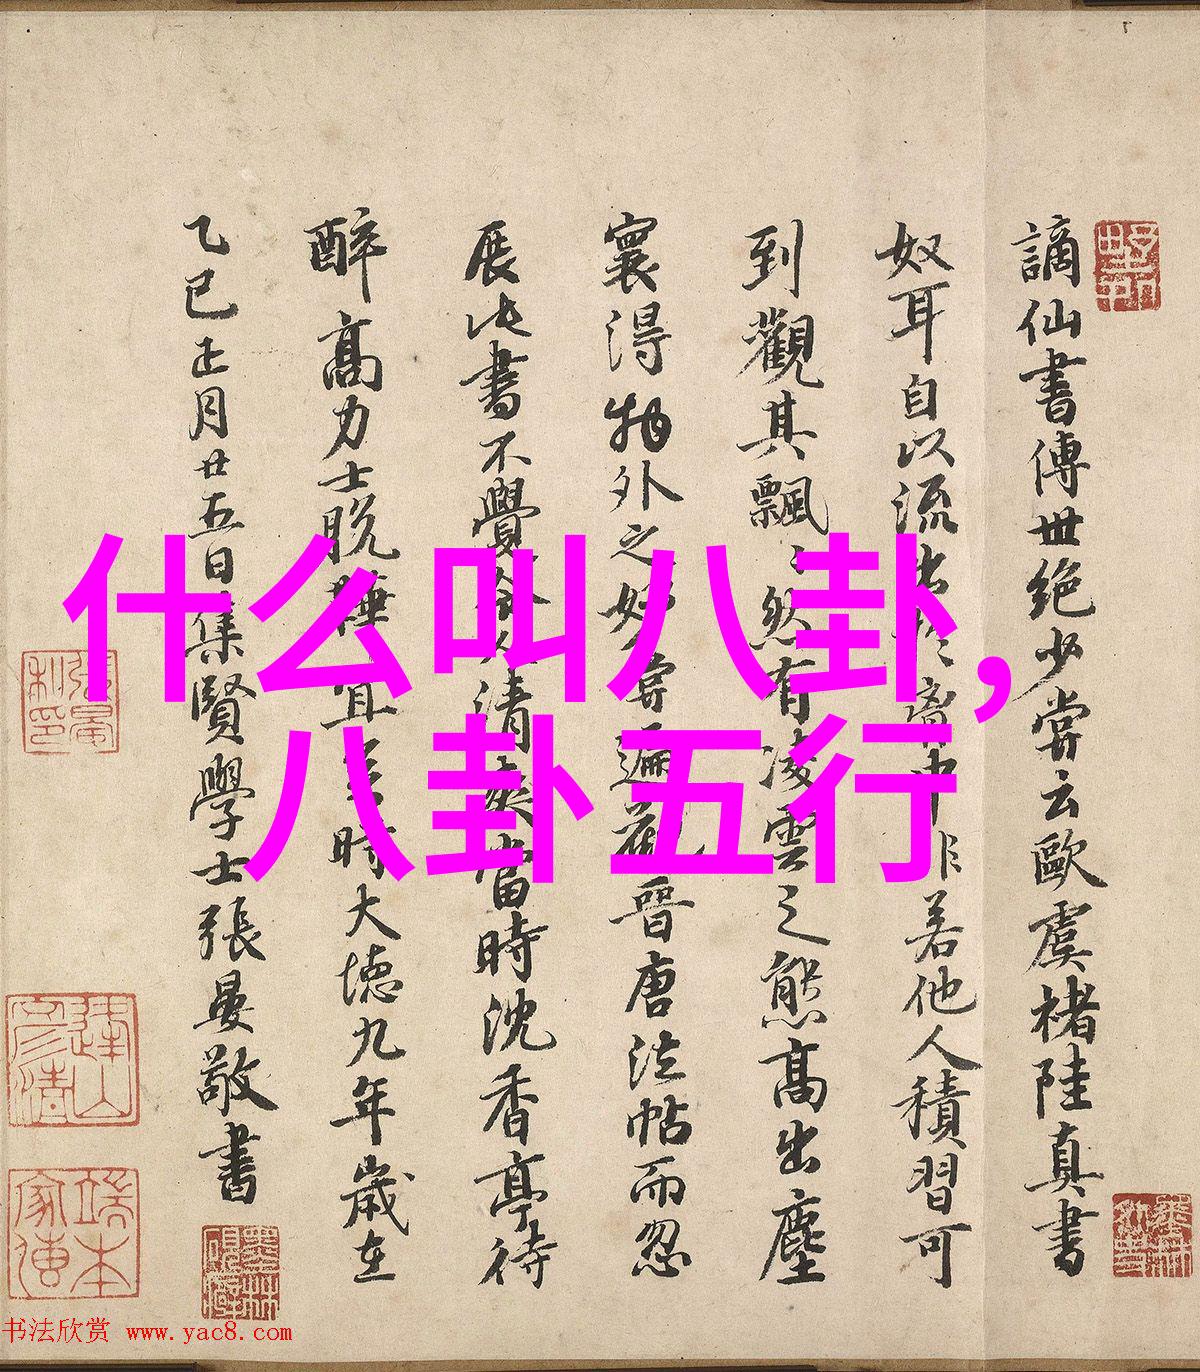 什么叫八卦，
八卦五行
謫仙書傳世絕少嘗云歐虞褚陸真書
奴耳自以流出於胸中非若他人積習可
到觀其飄〻然有凌雲之態高出塵
寰得物外之妙嘗遍觀晉唐法帖而忽
展此書不覺令人清爽當時沈香亭待
醉高力士脫鞾宜其當時大德九年歲在
乙巳正月廿五日集賢學士張晏敬書
書法欣赏 www.yac8.com